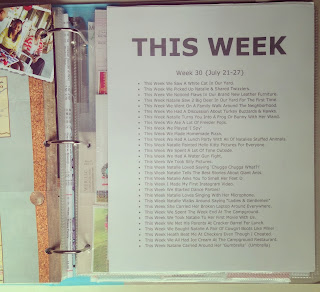 THIS WEEK
Week 30 (July 21-27)
This Week We Saw A White Cat In Our Yard.
This Week We Picked Up Natalie & Shared Twizzlers.
This Week We Noticed Flaws In Our Brand New Leather Furniture.
This Week Natalie Saw A Big Deer In Our Yard For The First Time.
This Week We Went On A Family Walk Around The Neighborhood.
This Week We Had A Discussion About Turkey Buzzards & Hawks.
This Week Natalie Turns You Into A Frog Or Bunny With Her Wand.
This Week We Ate A Lot Of Freezer Pops.
This Week We Played 'I Spy'
This Week We Made Homemade Pizza.
This Week We Had A Lunch Party With All Of Natalies Stuffed Animals.
This Week Natalie Painted Hello Kitty Pictures For Everyone.
This Week We Spent A Lot Of Time Outside.
This Week We Had A Water Gun Fight.
This Week We Took Silly Pictures.
This Week Natalie Loved Saying 'Chugga Chugga What!?'
This Week Natalie Tells The Best Stories About Quiet Ants.
This Week Natalie Asks You To Smell Her Feet
This Week I Made My First Instagram Video.
This Week We Started Galaxy Rescue.
This Week Natalie Loves Singing With Her Microphone.
This Week Natalie Walks Around Saying "Ladies & Gentlemen"
This Week We Carried Her Broken Laptop Around Everywhere.
This Week We Spent The Week End At The Campground.
This Week We Took Natalie To Her First Movie With Us.
This Week We Met My Parents At Cracker Barrel For Lunch
This Week We Bought Natalie A Pair Of Cowgirl Boots
This Week Heath Beat Me At Checkers Even Though I Cheated.
This Week We All Had Ice Cream At The Campground Restaurant.
This Week Natalie Danced Around Her